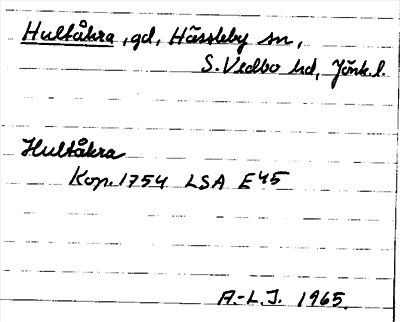 Hultåkra, gd, Hässleby sn,
S. Vedbo hd, Jönk. l.
Hultåkra
Kop. 1754 LSA E45
A.-L. J. 1965.